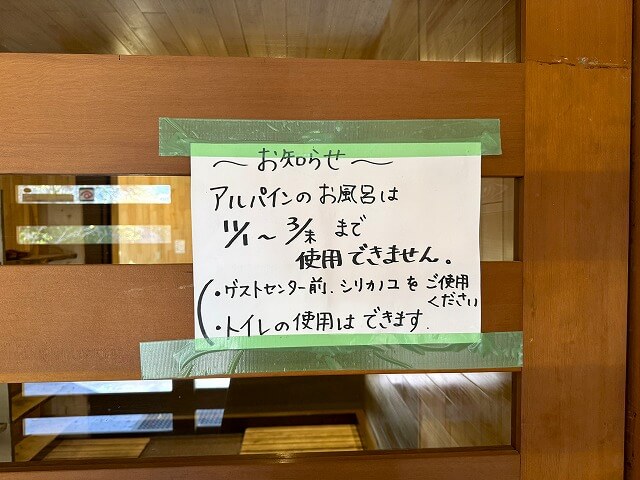 ～お知らせ～
アルパインのお風呂は
11/1～3/末 まで
使用できません。
・ゲストセンター前、シリカノユを ご使用
ください
・トイレの使用はできます.